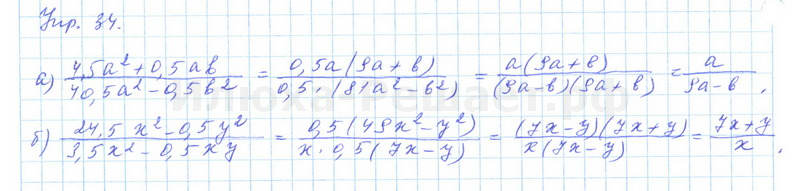 Упр. 34.
а) (4,5a² + 0,5ab)/(40,5a² – 0,5b²) = (0,5a(9a + b))/(0,5 · (81a² – b²)) = (a(9a + b))/((9a – b)(9a + b)) = a/(9a – b),
илюха-решает.рф
б) (24,5x² – 0,5y²)/(3,5x² – 0,5xy) = (0,5(49x² – y²))/(x · 0,5(7x – y)) = ((7x – y)(7x + y))/(x(7x – y)) = (7x + y)/x.